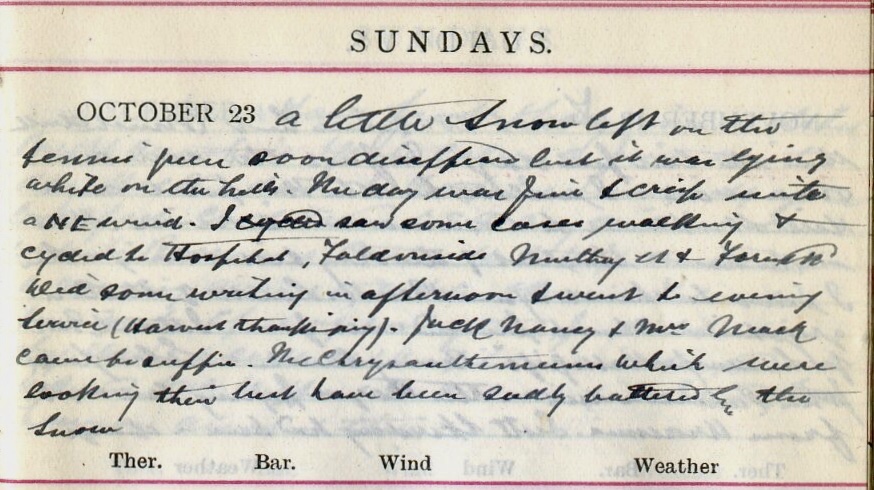 SUNDAYS.
OCTOBER 23 a little snow left on the
tennis green soon disappeared but it was lying
white on the hills. The day was fine & crisp with
a NE wind. I cycled saw some cases walking &
cycled to Hospital, Faldonside
Did some writing in afternoon & went to evening
Service (Harvest thanksgiving). Jack Nancy & Mrs Mack
came to supper. The Chrysanthemums which were
looking their best have been sadly battered by the
Snow
Ther. Bar. Wind Weather